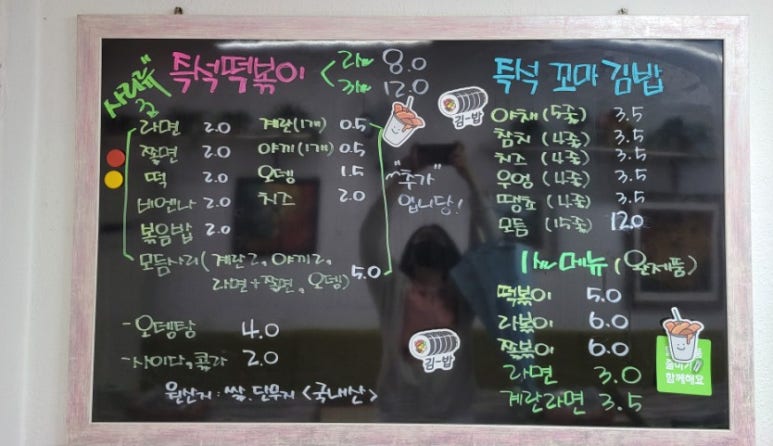 즉석떡볶이 < 2인 8.0
3인 12.0
사리류
라면 2.0 계란(1개) 0.5
쫄면 2.0 야끼(1개) 0.5
떡 2.0 오뎅 1.5
비엔나 2.0 치즈 2.0
볶음밥 2.0
모듬사리(계란2, 야끼2,
라면+쫄면, 오뎅) 5.0
"추가"
입니당!
-오뎅탕 4.0
-사이다, 콜라 2.0
원산지: 쌀, 단무지 <국내산>
김-밥
김-밥
즉석 꼬마김밥
야채 (5줄) 3.5
참치 (4줄) 3.5
치즈 (4줄) 3.5
우엉 (4줄) 3.5
땡초 (4줄) 3.5
모듬 (15줄) 12.0
1인메뉴 (완제품)
떡볶이 5.0
라볶이 6.0
쫄볶이 6.0
라면 3.0
계란라면 3.5
함께해요